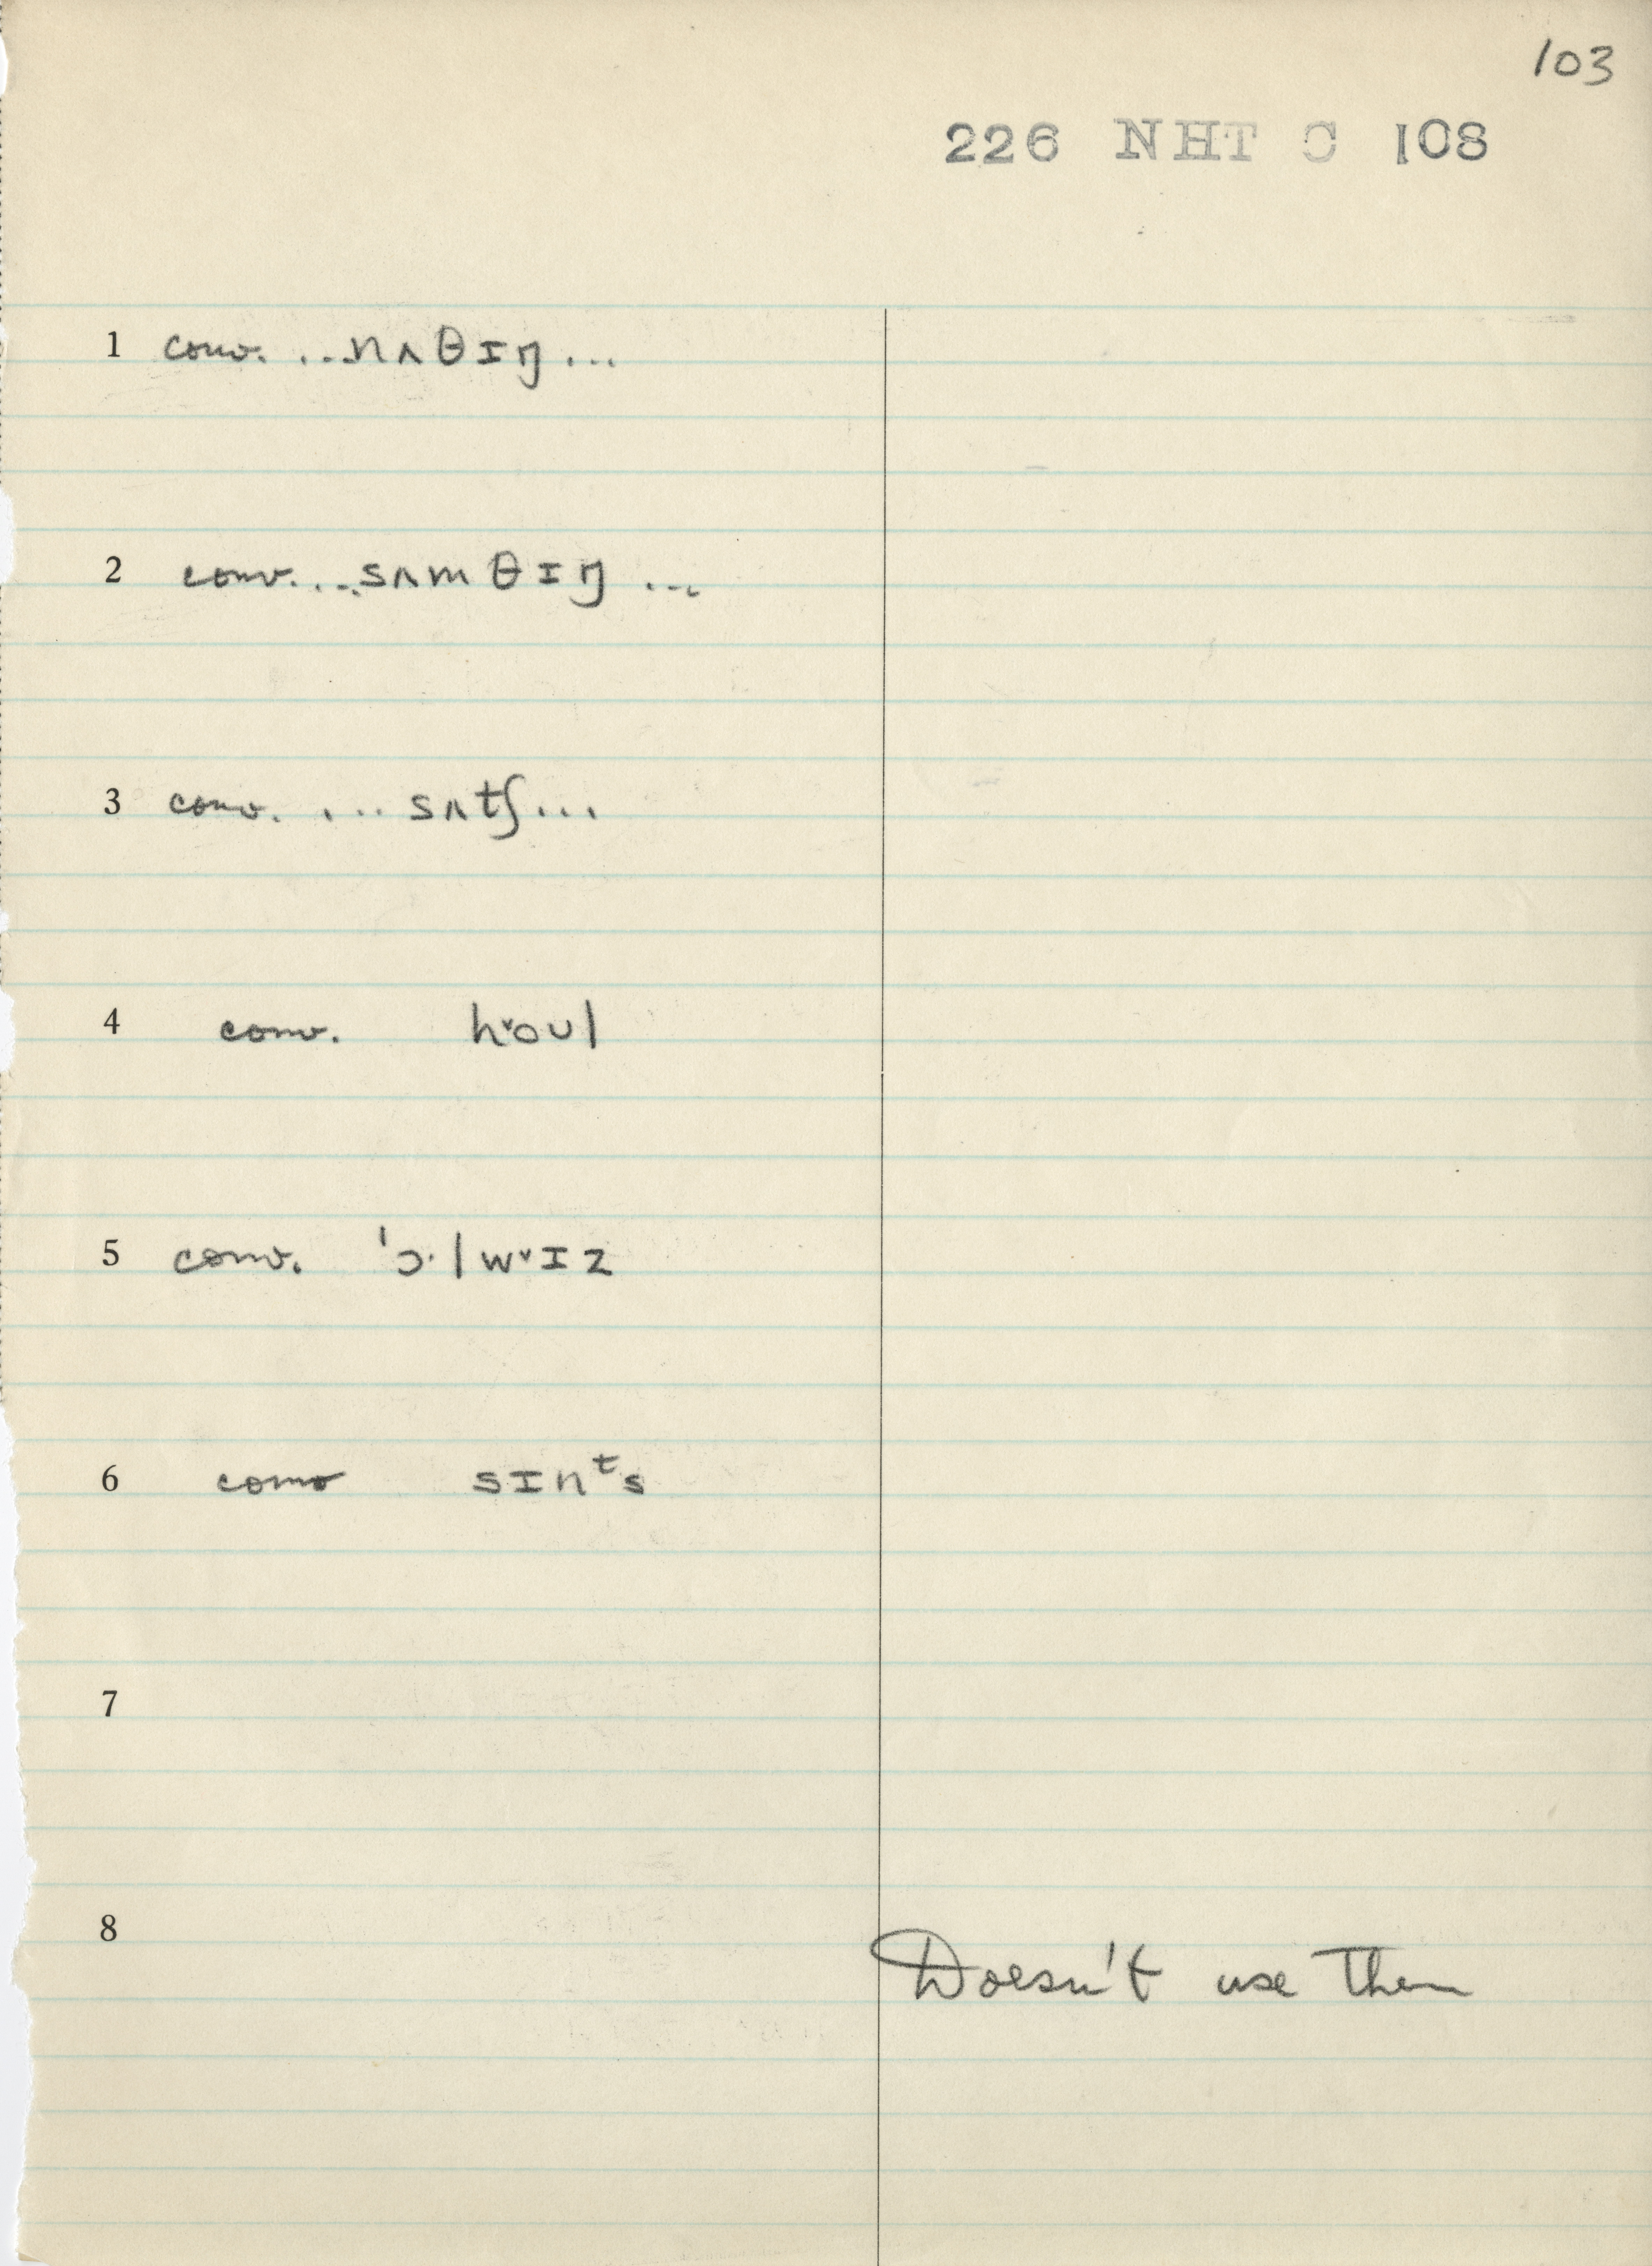 103
226 NHT C 108
1 conv. ...nʌθɪŋ...
2 conv. ...sʌmθɪŋ...
3 conv. ...sʌtʃ...
4 conv. h˅oʊl
5 conv. ˈɔ·lw˅ɪz
6 conv sɪnᵗs
7
8 Doesn't use them